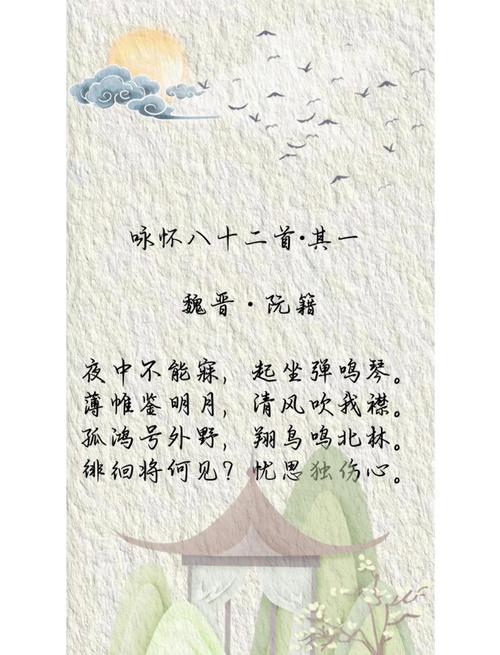 咏怀八十二首·其一
魏晋·阮籍
夜中不能寐，起坐弹鸣琴。
薄帷鉴明月，清风吹我襟。
孤鸿号外野，翔鸟鸣北林。
徘徊将何见？忧思独伤心。